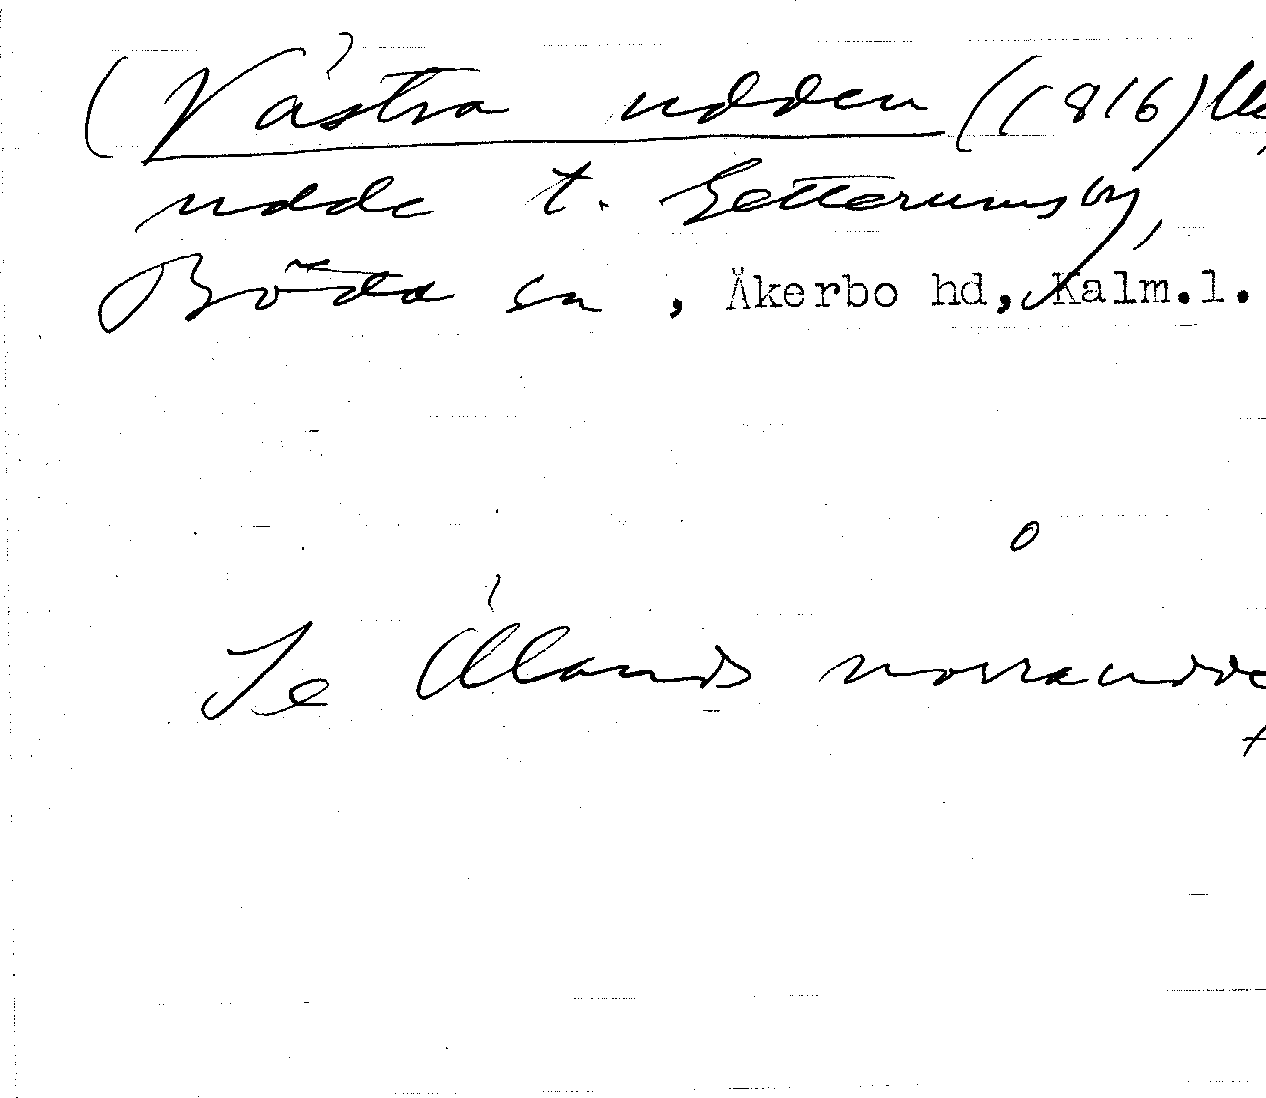 (Västra udden (1816)
udde t. Getterumsby,
Böda sn, Åkerbo hd, Kalm.l.
Se Ölands norra udde